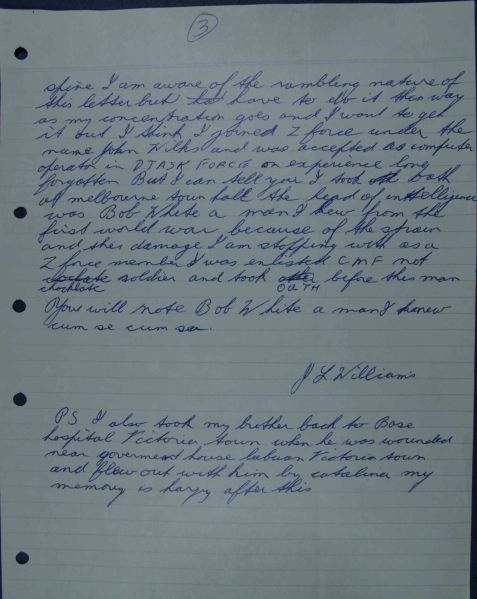 3
spine I am aware of the rambling nature of
this letter but have to do it this way
as my concentration goes and I want to get
it but I think I joined Z force under the
name John Wilks and was accepted as computer
operator in D TASK FORCE on experience long
forgotten But I can tell you I took oath
at melbourne town hall the head of intelligence
was Bob White a man I knew from the
first world war, because of the sprain
and this damage I am stopping with as a
Z force member I was enlisted CMF not
chocklate soldier and took OATH before this man
You will note Bob White a man I knew
cum se cum sa.
J L Williams
PS. I also took my brother back to Base
hospital Victoria town when he was wounded
near goverment house labuan Victoria town
and flew out with him by catalina my
memory is hazy after this